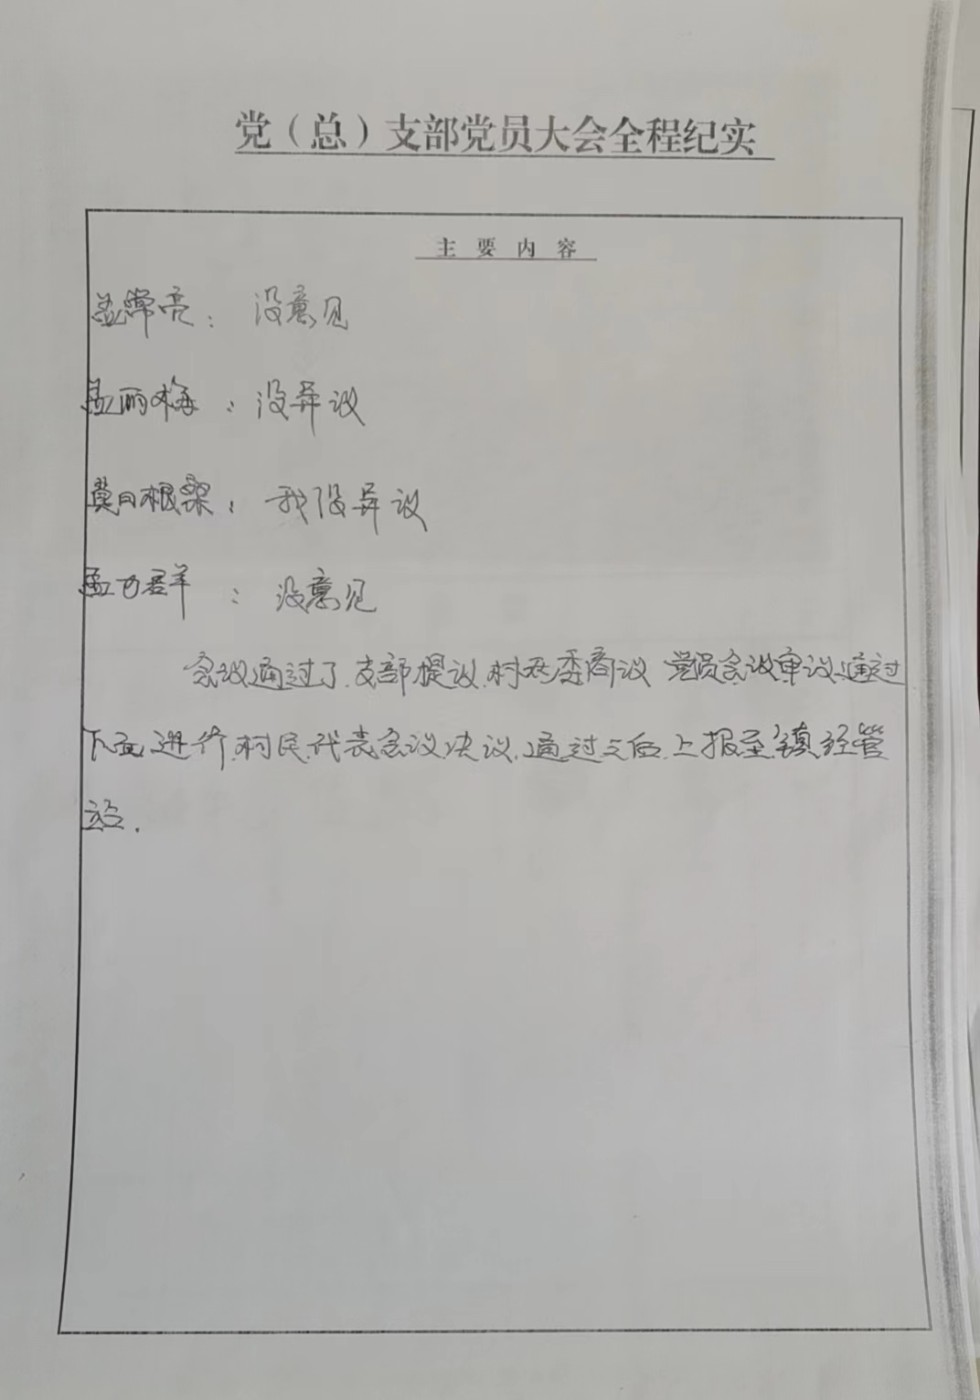 党（总）支部党员大会全程纪实
主要内容
孟常亮：没意见
孟丽梅：没异议
莫日根梁：我没异议
孟万君羊：没意见
会议通过了.支部提议.村两委商议 党员会议审议.通过
下面进行.村民代表会议决议.通过之后.上报至镇经管
站.